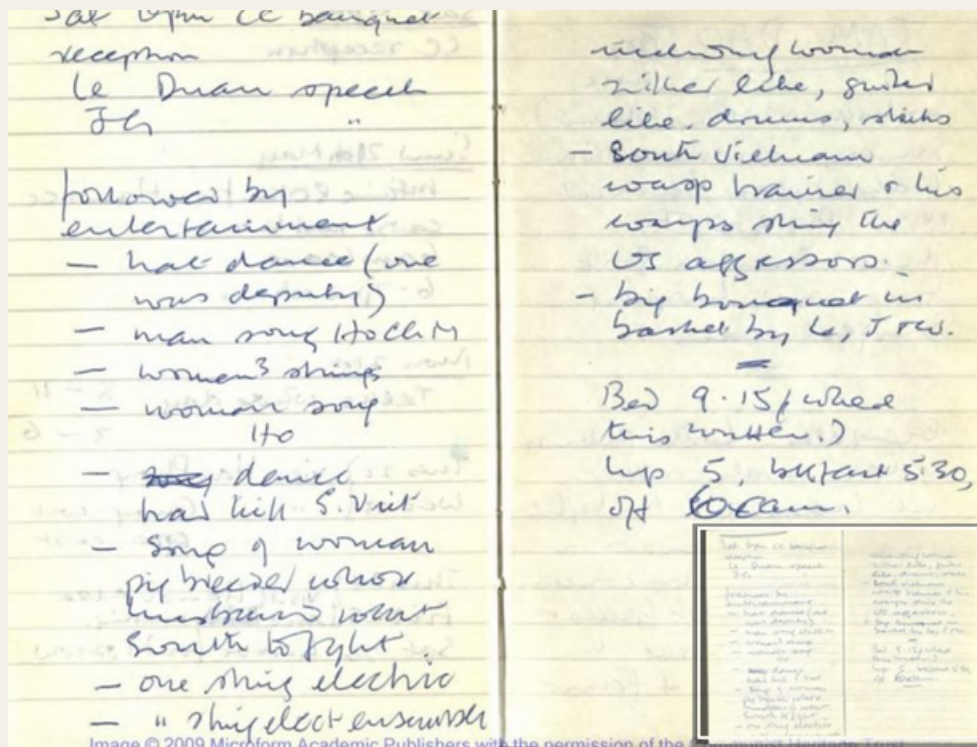 Sat 6pm CC banquet
reception
Le Duan speech
JG "
followed by
entertainment
- hat dance (one
was deputy)
- man song Ho Chi M
- woman 3 strings
- woman song
Ho
- song dance
had kill S. Viet
- Song of woman
pig breeder whose
husband went
South to fight.
- one string electric
- " string elect ensemble
including woman
zither like, guitar
like, drums, sticks
- South Vietnam
wasp trainer & his
wasps sting the
US aggressors.
- big bouquet in
basket by Le, J &
Bed 9.15 (when
this written.)
Up 5, bkfast 5.30,
off 6am.
Image © 2009 Microform Academic Publishers with the permission of the Communist Heritage Trust